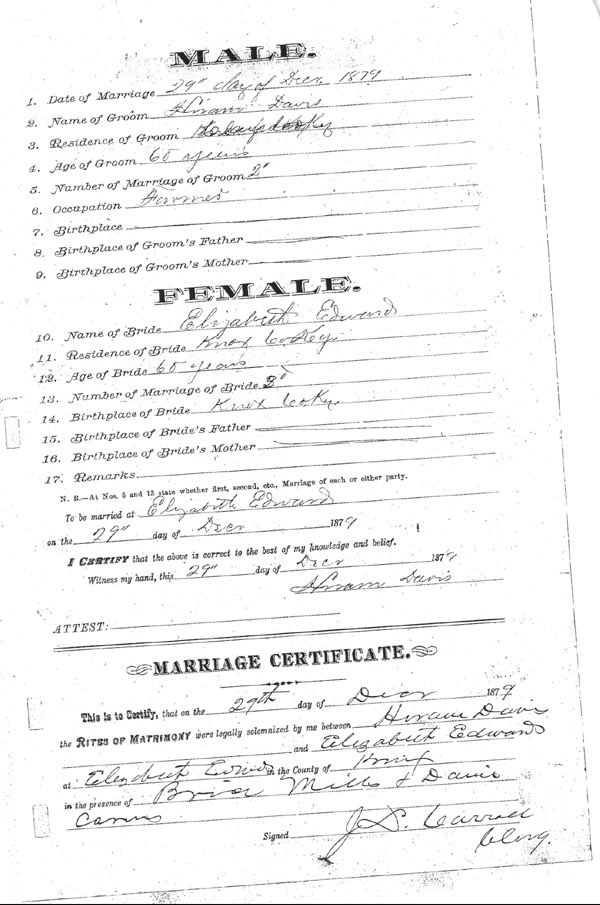 MALE.
1. Date of Marriage 29" day of Decr 1879
2. Name of Groom Hiram Davis
3. Residence of Groom Ky
4. Age of Groom 60 years
5. Number of Marriage of Groom 2"
6. Occupation Farmer
7. Birthplace
8. Birthplace of Groom's Father
9. Birthplace of Groom's Mother
FEMALE.
10. Name of Bride Elizabeth Edward
11. Residence of Bride Knox Co Ky.
12. Age of Bride 60 years
13. Number of Marriage of Bride 3d
14. Birthplace of Bride Knox Co Ky.
15. Birthplace of Bride's Father
16. Birthplace of Bride's Mother
17. Remarks
N. B.—At Nos. 5 and 13 state whether first, second, etc., Marriage of each or either party.
To be married at Elizabeth Edward
on the 29" day of Decr 1879
I CERTIFY that the above is correct to the best of my knowledge and belief.
Witness my hand, this 29" day of Decr 1879
Hiram Davis
ATTEST:
MARRIAGE CERTIFICATE.
This is to Certify, that on the 29th day of Decr 1879
the RITES OF MATRIMONY were legally solemnized by me between Hiram Davis
and Elizabeth Edwards
at Elizabeth in the County of Knox
in the presence of Mills & Davis
Signed